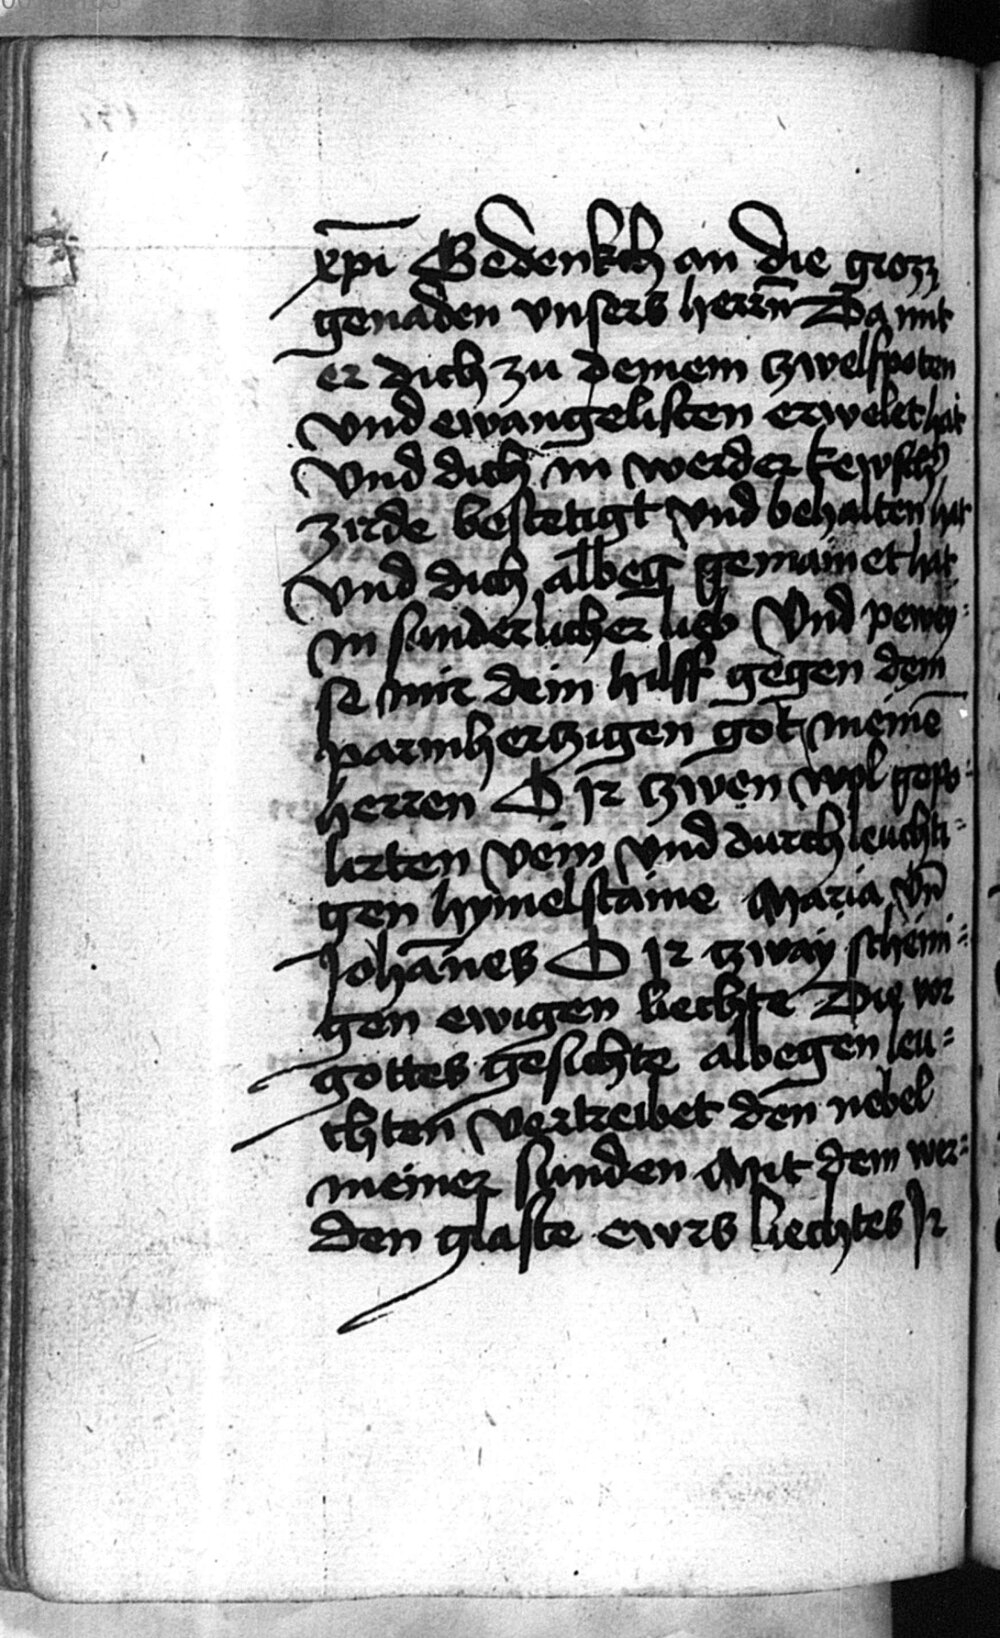 xp̄i Gedenkch an die grozz
genaden vnsers herrn̄ Da mit
er dich zu deinem tzwelfpoten
vnd ewangelisten erwelet hat
vnd dich in werder kewsch
zirde bestetigt vnd behalten hat
vnd dich albeg gemainet hat
in sunderlicher lieb Vnd pewey-
se mir dein hilff gegen dem
parmhertzigen got meinē
herren O Ir tzwen wol gepo-
lirten vein vnd durchleuchti-
gen hymelstaine Maria vn̄
Johān̄es O Ir tzway scheini-
gen ewigen liechte Die vor
gottes gesichte albegen leu-
chten vertreibet den nebel
meiner sunden Mit dem wer-
den glaste ewrs liechtes Ir